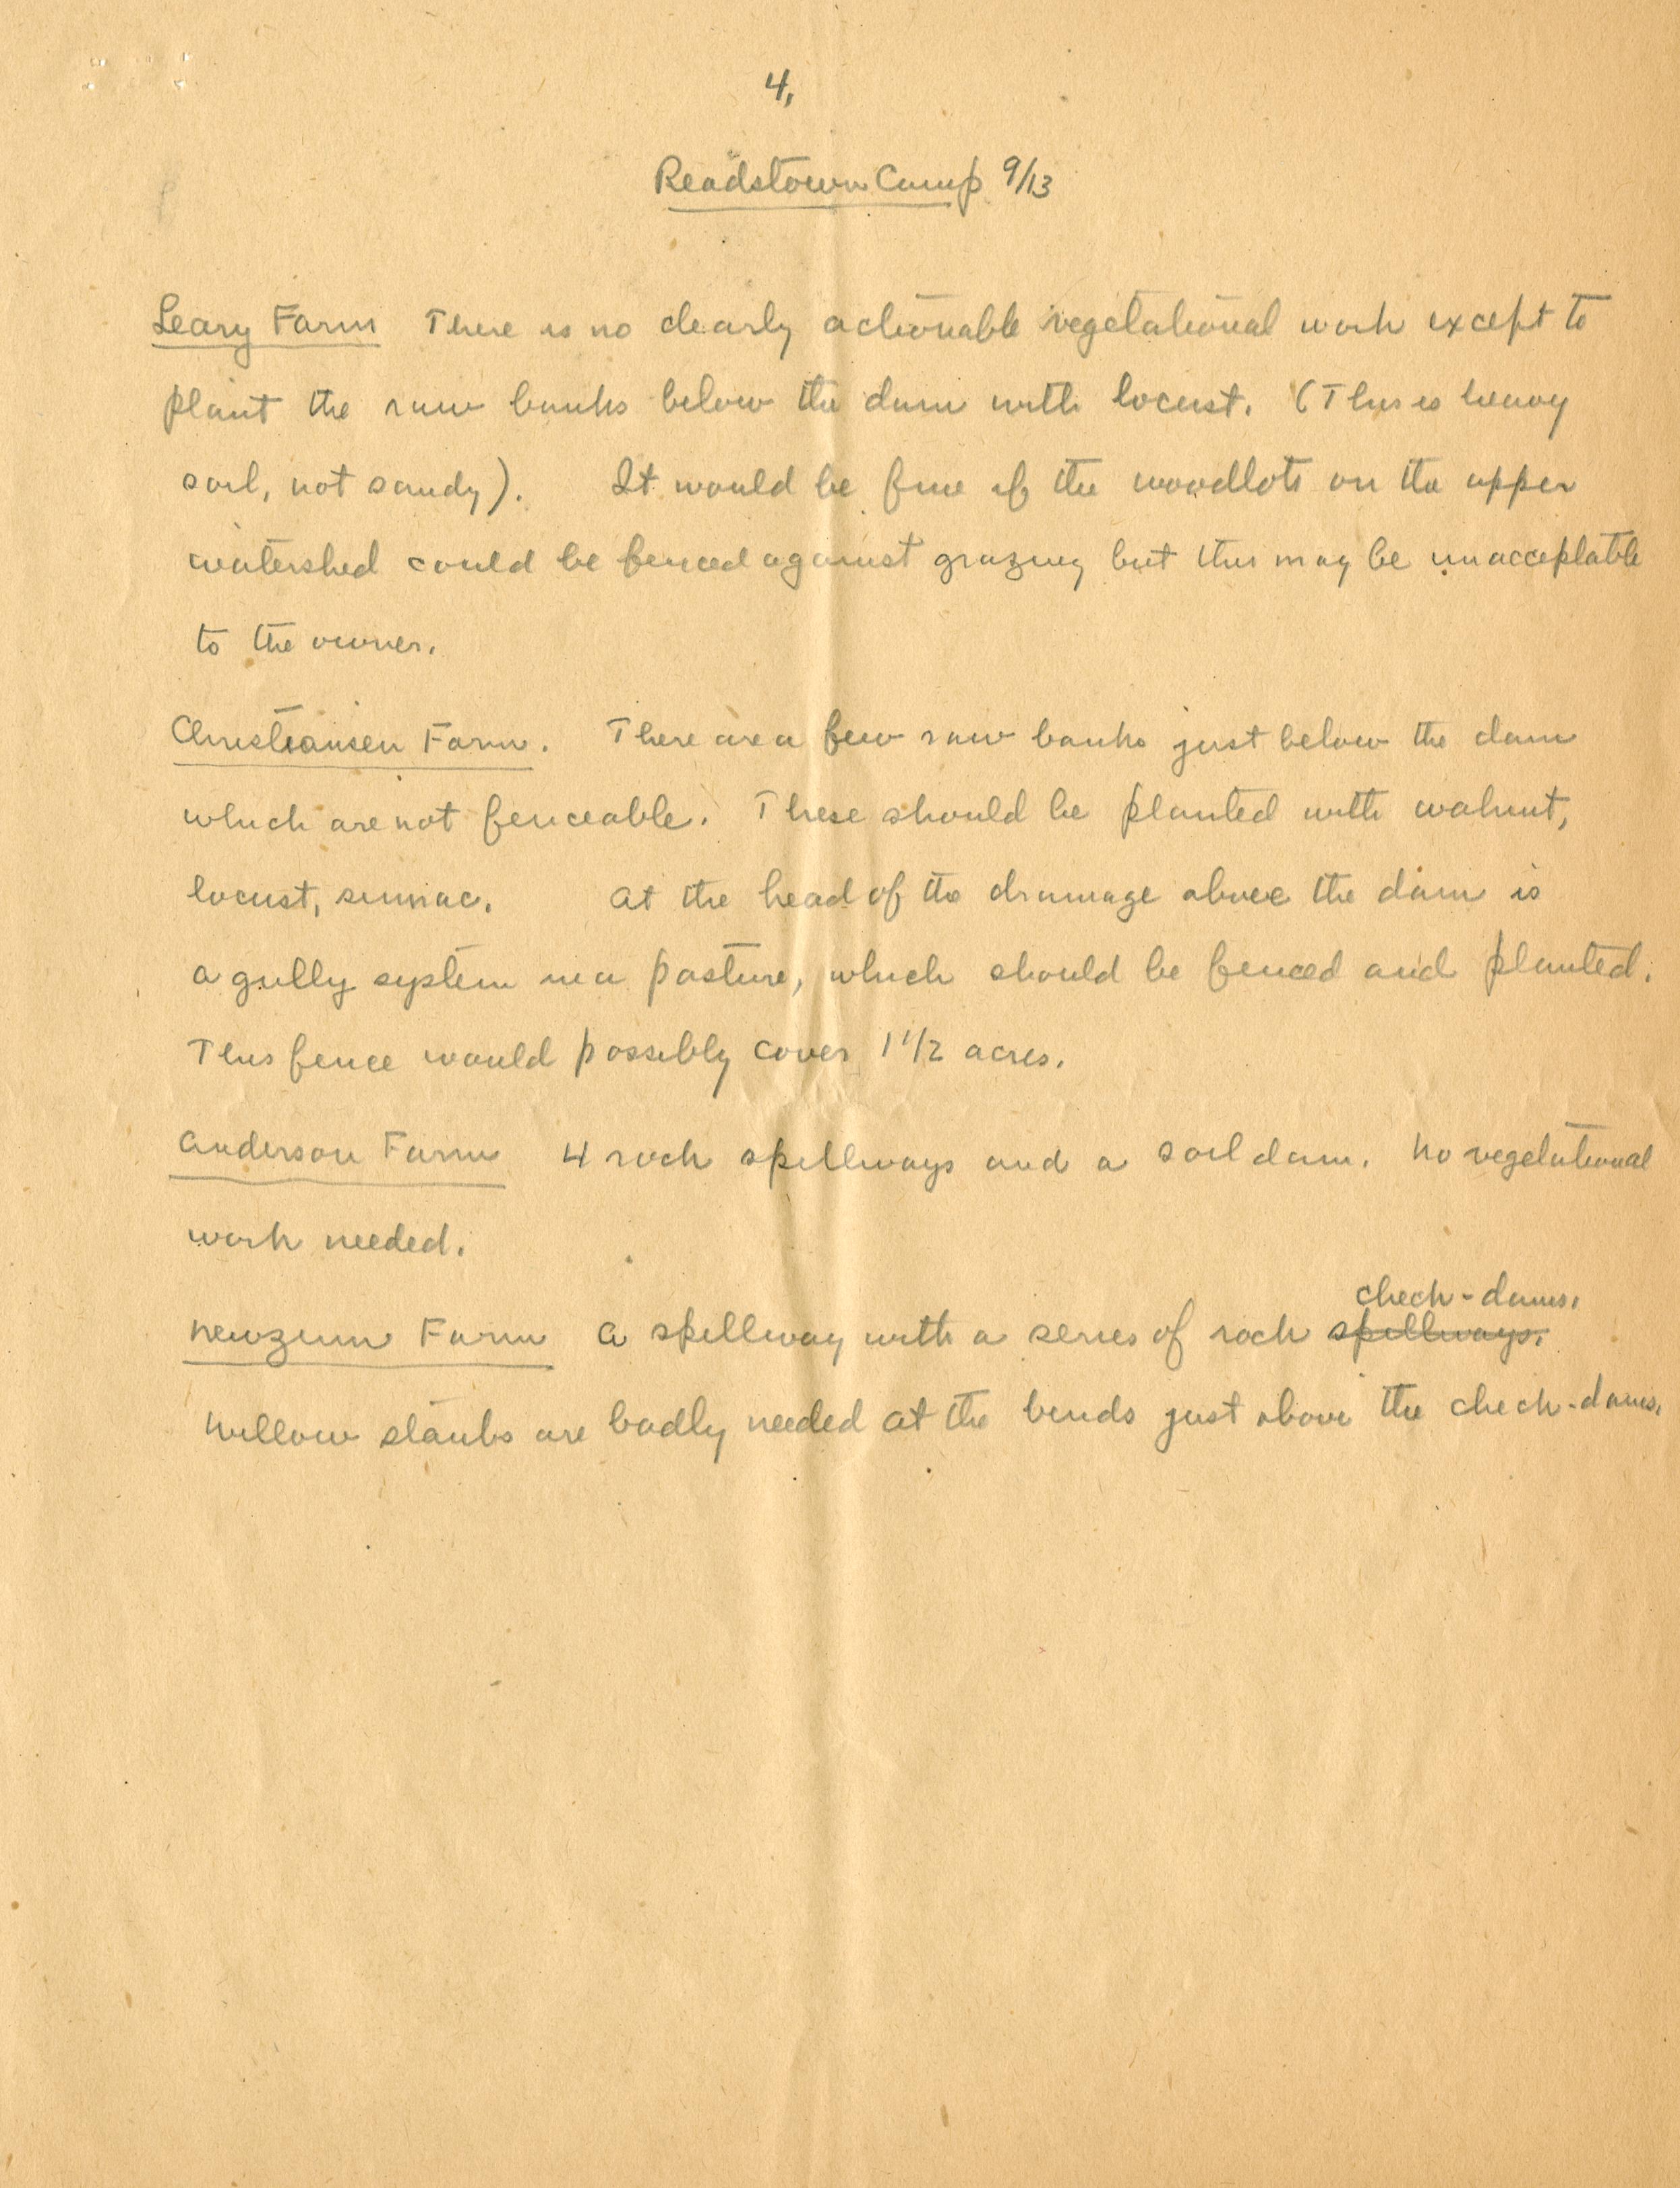 4.
Readstown Camp 9/13
Leary Farm There is no clearly actionable vegetational work except to
plant the raw banks below the dam with locust. (This is heavy
soil, not sandy). It would be fine if the woodlots on the upper
watershed could be fenced against grazing but this may be unacceptable
to the owner.
Christiansen Farm. There are a few raw banks just below the dam
which are not fenceable. These should be planted with walnut,
locust, sumac. At the head of the drainage above the dam is
a gully system in a pasture, which should be fenced and planted.
This fence would possibly cover 1 1/2 acres.
Anderson Farm 4 rock spillways and a soil dam. No vegetational
work needed.
check-dams.
Newzum Farm A spillway with a series of rock spillways.
Willow staubs are badly needed at the bends just above the check-dams.